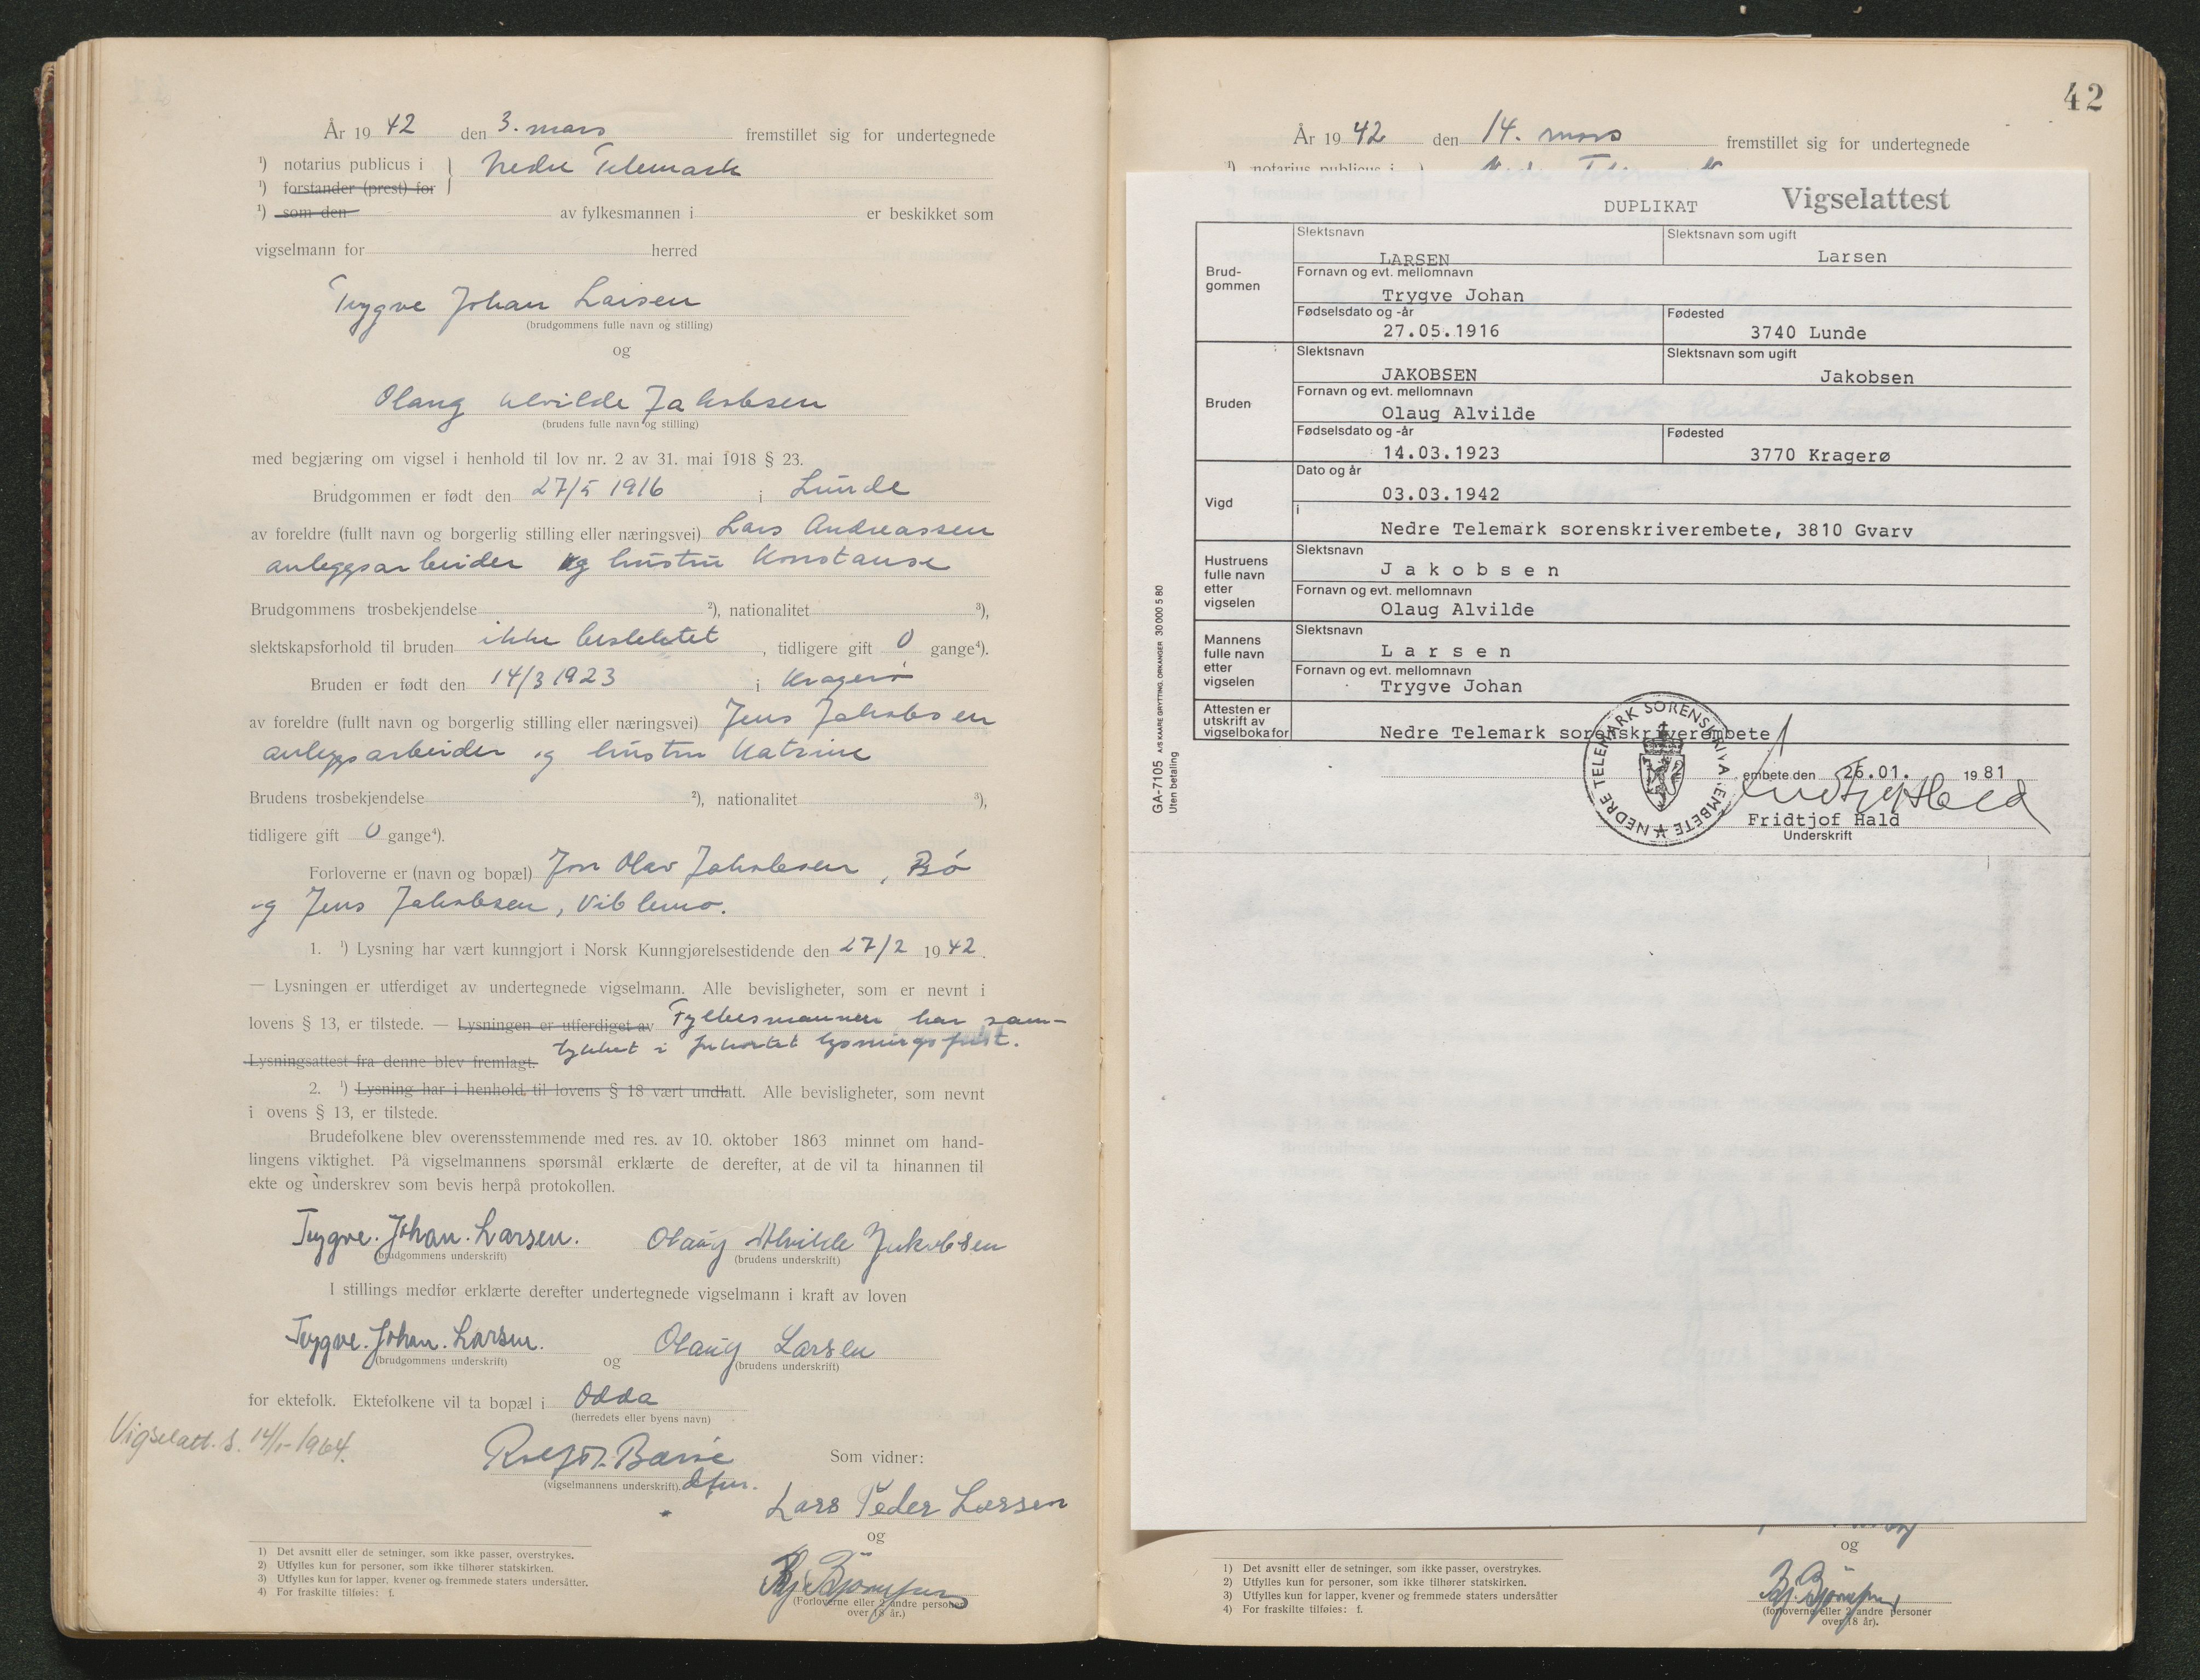 År 19 42 den 3. mars fremstillet sig for undertegnede
¹) notarius publicus i } Nedre Telemark
¹) forstander (prest) for
¹) som den av fylkesmannen i er beskikket som
vigselmann for herred
Trygve Johan Larsen
(brudgommens fulle navn og stilling)
og
Olaug Alvilde Jakobsen
(brudens fulle navn og stilling)
med begjæring om vigsel i henhold til lov nr. 2 av 31. mai 1918 § 23.
Brudgommen er født den 27/5 1916 i Lunde
av foreldre (fullt navn og borgerlig stilling eller næringsvei) Lars Andreassen
anleggsarbeider og hustru Konstanse
Brudgommens trosbekjendelse ²), nationalitet ³),
slektskapsforhold til bruden ikke beslektet, tidligere gift 0 gange⁴).
Bruden er født den 14/3 1923 i Kragerø
av foreldre (fullt navn og borgerlig stilling eller næringsvei) Jens Jakobsen
anleggsarbeider og hustru Katrine
Brudens trosbekjendelse ²), nationalitet ³),
tidligere gift 0 gange⁴).
Forloverne er (navn og bopæl) Jon Olav Jakobsen, Bø
og Jens Jakobsen, Viblemo.
1. ¹) Lysning har vært kunngjort i Norsk Kunngjørelsestidende den 27/2 19 42.
— Lysningen er utferdiget av undertegnede vigselmann. Alle bevisligheter, som er nevnt i
lovens § 13, er tilstede. — Lysningen er utferdiget av Fylkesmannen har sam-
Lysningsattest fra denne blev fremlagt. tykket i forkortet lysningsfrist.
2. ¹) Lysning har i henhold til lovens § 18 vært undlatt. Alle bevisligheter, som nevnt
i ovens § 13, er tilstede.
Brudefolkene blev overensstemmende med res. av 10. oktober 1863 minnet om hand-
lingens viktighet. På vigselmannens spørsmål erklærte de derefter, at de vil ta hinannen til
ekte og underskrev som bevis herpå protokollen.
Trygve. Johan. Larsen. Olaug Alvilde Jakobsen
(brudgommens underskrift) (brudens underskrift)
I stillings medfør erklærte derefter undertegnede vigselmann i kraft av loven
Trygve. Johan. Larsen. og Olaug Larsen
(brudgommens underskrift) (brudens underskrift)
for ektefolk. Ektefolkene vil ta bopæl i Odda
(herredets eller byens navn)
Vigselatt. s. 14/1-1964.
Som vidner:
(vigselmannens underskrift). dfm.
Lars Peder Larsen
og
(Forloverne eller 2 andre personer
over 18 år.)
1) Det avsnitt eller de setninger, som ikke passer, overstrykes.
2) Utfylles kun for personer, som ikke tilhører statskirken.
3) Utfylles kun for lapper, kvener og fremmede staters undersåtter.
4) For fraskilte tilføies: f.
42
År 19 42 den 14. mars fremstillet sig for undertegnede
¹) notarius publicus i } Nedre Telemark
DUPLIKAT Vigselattest
Brud-
gommen
Slektsnavn
LARSEN
Slektsnavn som ugift
Larsen
Fornavn og evt. mellomnavn
Trygve Johan
Fødselsdato og -år
27.05.1916
Fødested
3740 Lunde
Bruden
Slektsnavn
JAKOBSEN
Slektsnavn som ugift
Jakobsen
Fornavn og evt. mellomnavn
Olaug Alvilde
Fødselsdato og -år
14.03.1923
Fødested
3770 Kragerø
Vigd
Dato og år
03.03.1942
i
Nedre Telemark sorenskriverembete, 3810 Gvarv
Hustruens
fulle navn
etter
vigselen
Slektsnavn
Jakobsen
Fornavn og evt. mellomnavn
Olaug Alvilde
Mannens
fulle navn
etter
vigselen
Slektsnavn
Larsen
Fornavn og evt. mellomnavn
Trygve Johan
Attesten er
utskrift av
vigselboka for
Nedre Telemark sorenskriverembete
embete den 26.01. 19 81
NEDRE TELEMARK SORENSKRIVAREMBETE
Fridtjof Hald
Fridtjof Hald
Underskrift
GA-7105 A/S KAARE GRYTTING, ORKANGER 30000 5 80
Uten betaling
og
(forloverne eller 2 andre personer
over 18 år).
1) Det avsnitt eller de setninger, som ikke passer, overstrykes.
2) Utfylles kun for personer, som ikke tilhører statskirken.
3) Utfylles kun for lapper, kvener og fremmede staters undersåtter
4) For fraskilte tilføies: f.